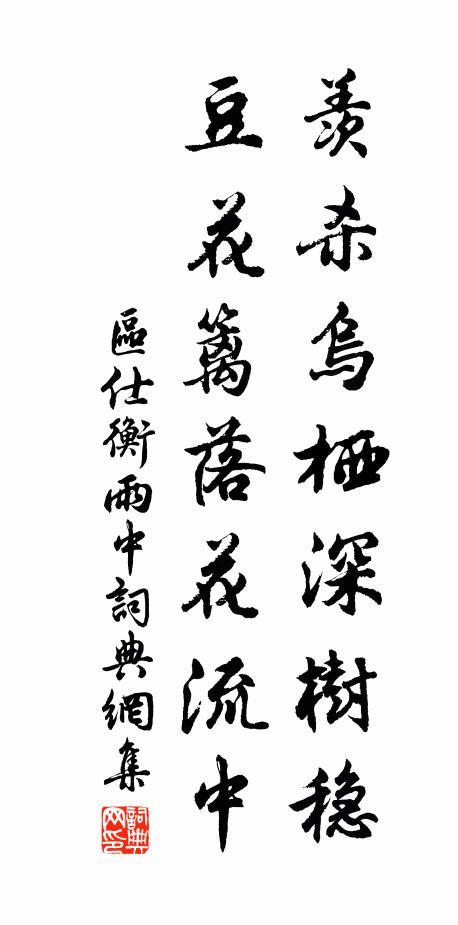 羨杀烏栖深樹穏
豆花籬落花流中
區仕衡雨中詞典網集
詞典网印